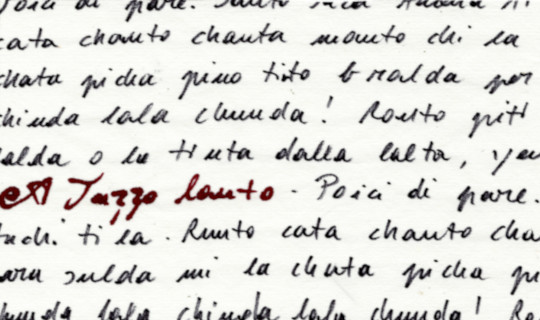 di pare.
cata chanto chanta monto chi la
chata picha pino tito bralda per
chinda lala chunda! Ronto pitt
lalda o la tinta dalla lalta,
A Tazzo lanto. Poici di pare.
tuchi ti la. Runto cata chanto cha
sulda mi la chata picha pi
lala chinda lala chunda!